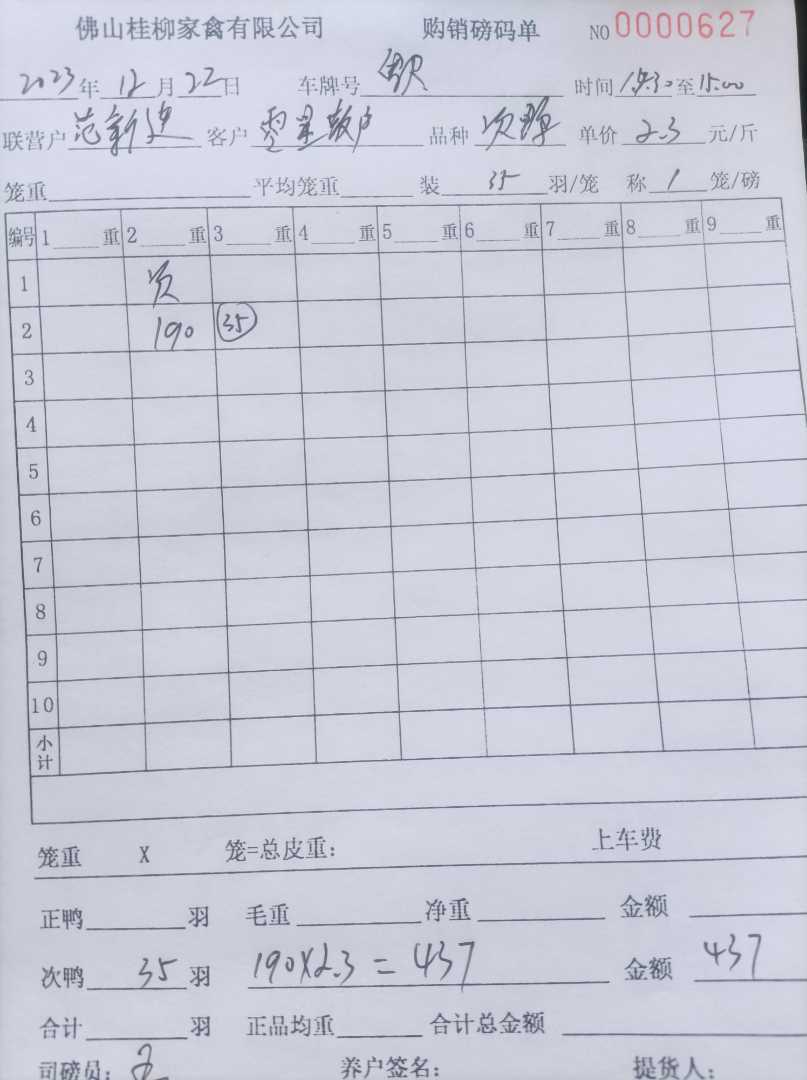 佛山桂柳家禽有限公司 购销磅码单 NO 0000627
2023年 12月 22日 车牌号 时间 至 15:00
联营户 范新建 客户 零星散户 品种 次鸭 单价 2.3 元/斤
笼重 平均笼重 装 35 羽/笼 称 1 笼/磅
编号 1 重 2 重 3 重 4 重 5 重 6 重 7 重 8 重 9 重
1 次
2 190 35
3
4
5
6
7
8
9
10
小计
笼重 X 笼=总皮重: 上车费
正鸭 羽 毛重 净重 金额
次鸭 35 羽 190X2.3 = 437 金额 437
合计 羽 正品均重 合计总金额
司磅员: 养户签名: 提货人: